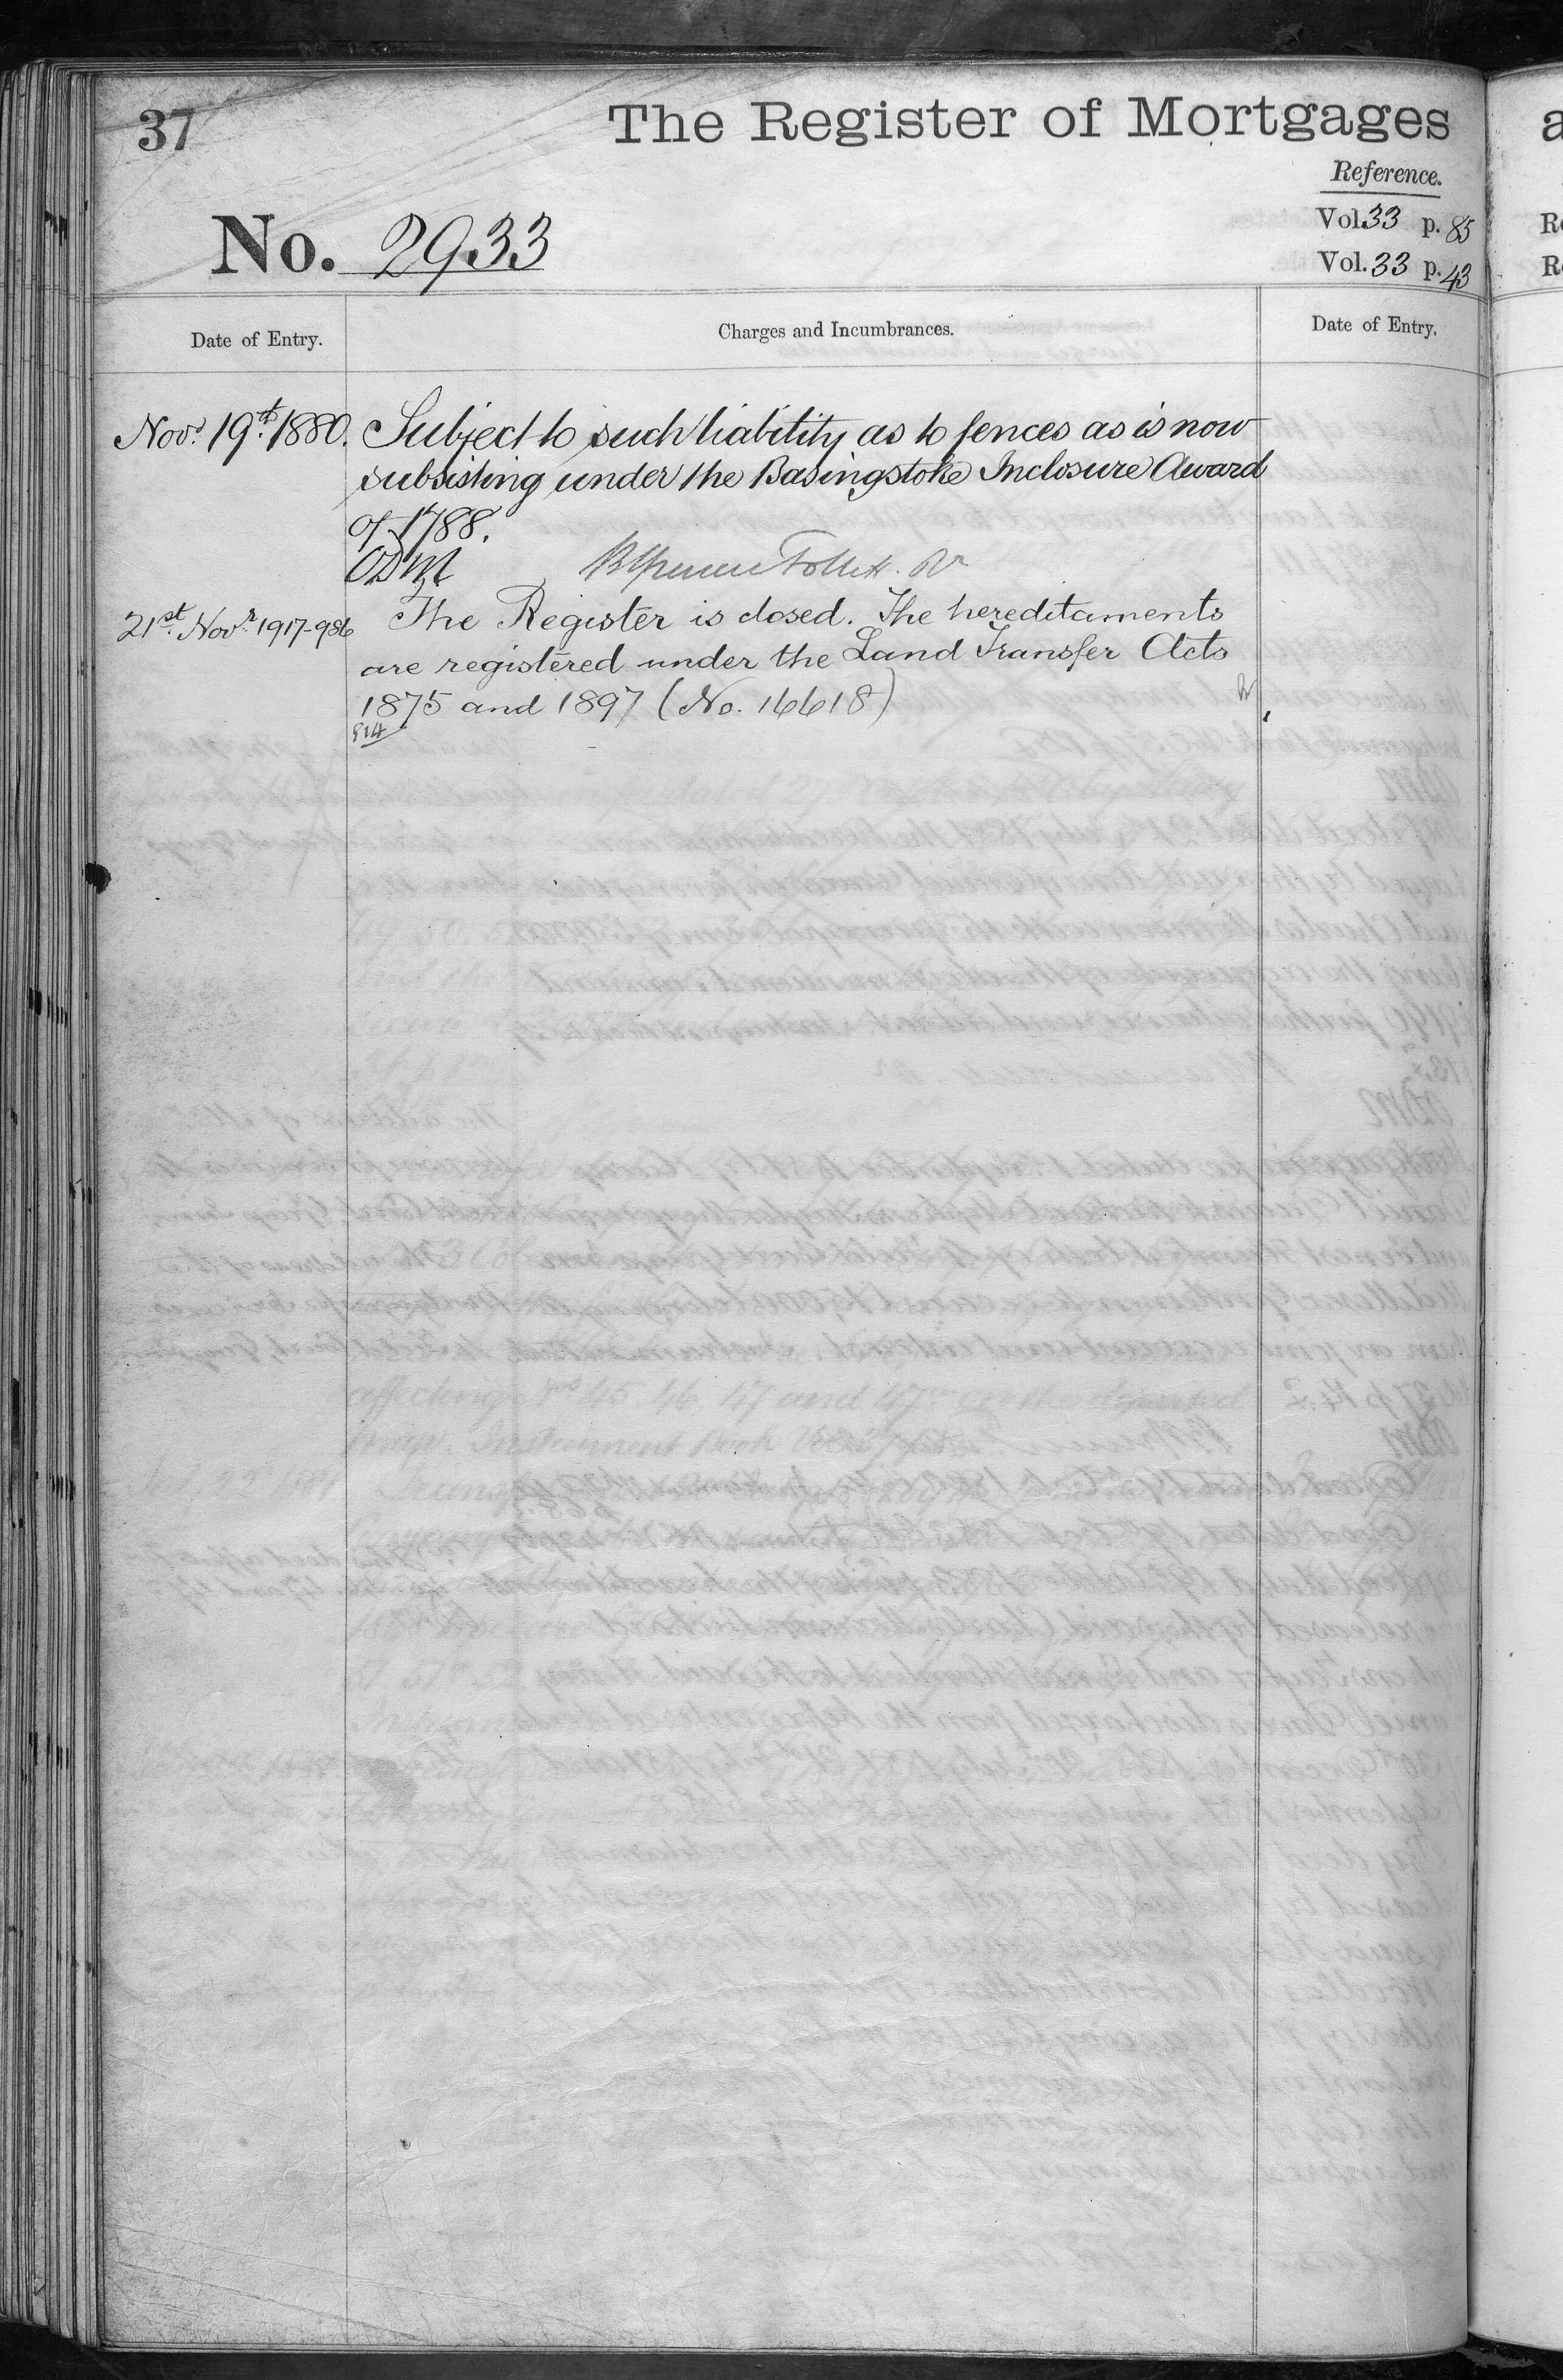 37
The Register of Mortgages
Reference.
No. 2933
Vol. 33 p. 85
Vol. 33 p. 43
Date of Entry.
Charges and Incumbrances.
Date of Entry.
Novr. 19th. 1880.
Subject to such liability as to fences as is now
subsisting under the Basingstoke Inclosure Award
of 1788.
ODM
Follett
21st. Novr. 1917-986
The Register is closed. The hereditaments
are registered under the Land Transfer Acts
1875 and 1897 (No. 16618)